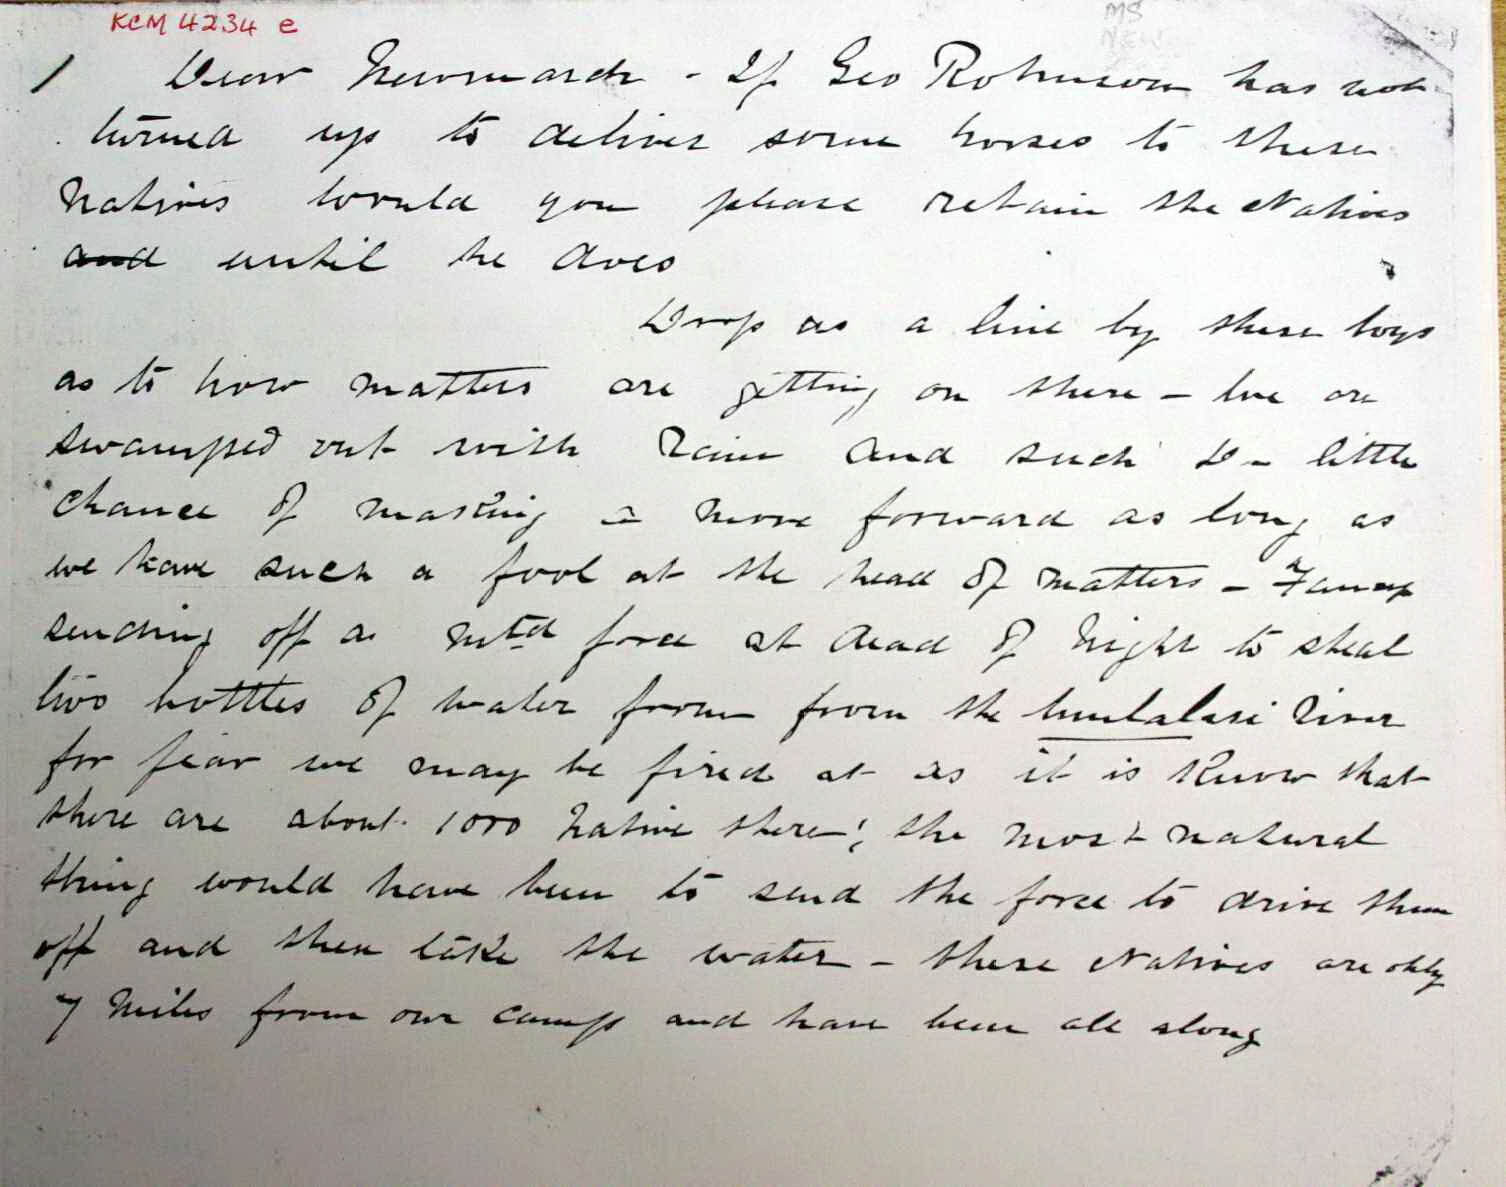 KCM 4234 e
MS
NEW
1 Dear Newmarch - If Geo Robinson has not
turned up to deliver some horses to these
Natives would you please retain the Natives
and until he does
Drop us a line by these boys
as to how matters are getting on there - we are
swamped out with rain and such little
chance of making a move forward as long as
we have such a fool at the head of matters - Fancy
sending off a mtd force at dead of night to steal
two bottles of water from from the Umlalasi river
for fear we may be fired at as it is know that
there are about 1000 native there! the most natural
thing would have been to send the force to drive them
off and then take the water - these Natives are only
7 miles from our camp and have been all along